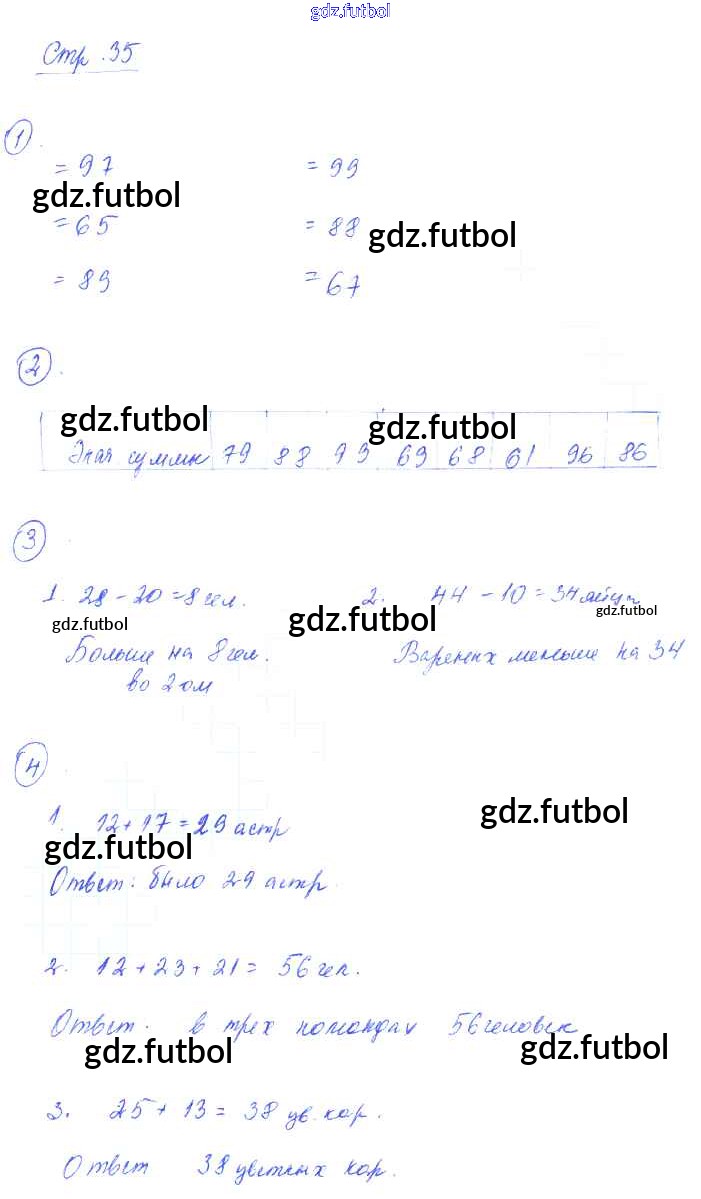 gdz.futbol
Стр. 35
1.
= 97 = 99
gdz.futbol
= 65 = 88
gdz.futbol
= 89 = 67
2.
gdz.futbol gdz.futbol
суммы 79 88 99 69 68 61 96 86
3.
1. 28 - 20 = 8 чел. 2. 44 - 10 = 34 яйца
gdz.futbol gdz.futbol gdz.futbol
Больше на 8 чел. Вареных меньше на 34
во 2 ом
4.
1. 12 + 17 = 29 астр
gdz.futbol
gdz.futbol
Ответ: было 29 астр.
2. 12 + 23 + 21 = 56 чел.
Ответ. в трех командах 56 человек
gdz.futbol gdz.futbol
3. 25 + 13 = 38 цв. кар.
Ответ 38 цветных кар.